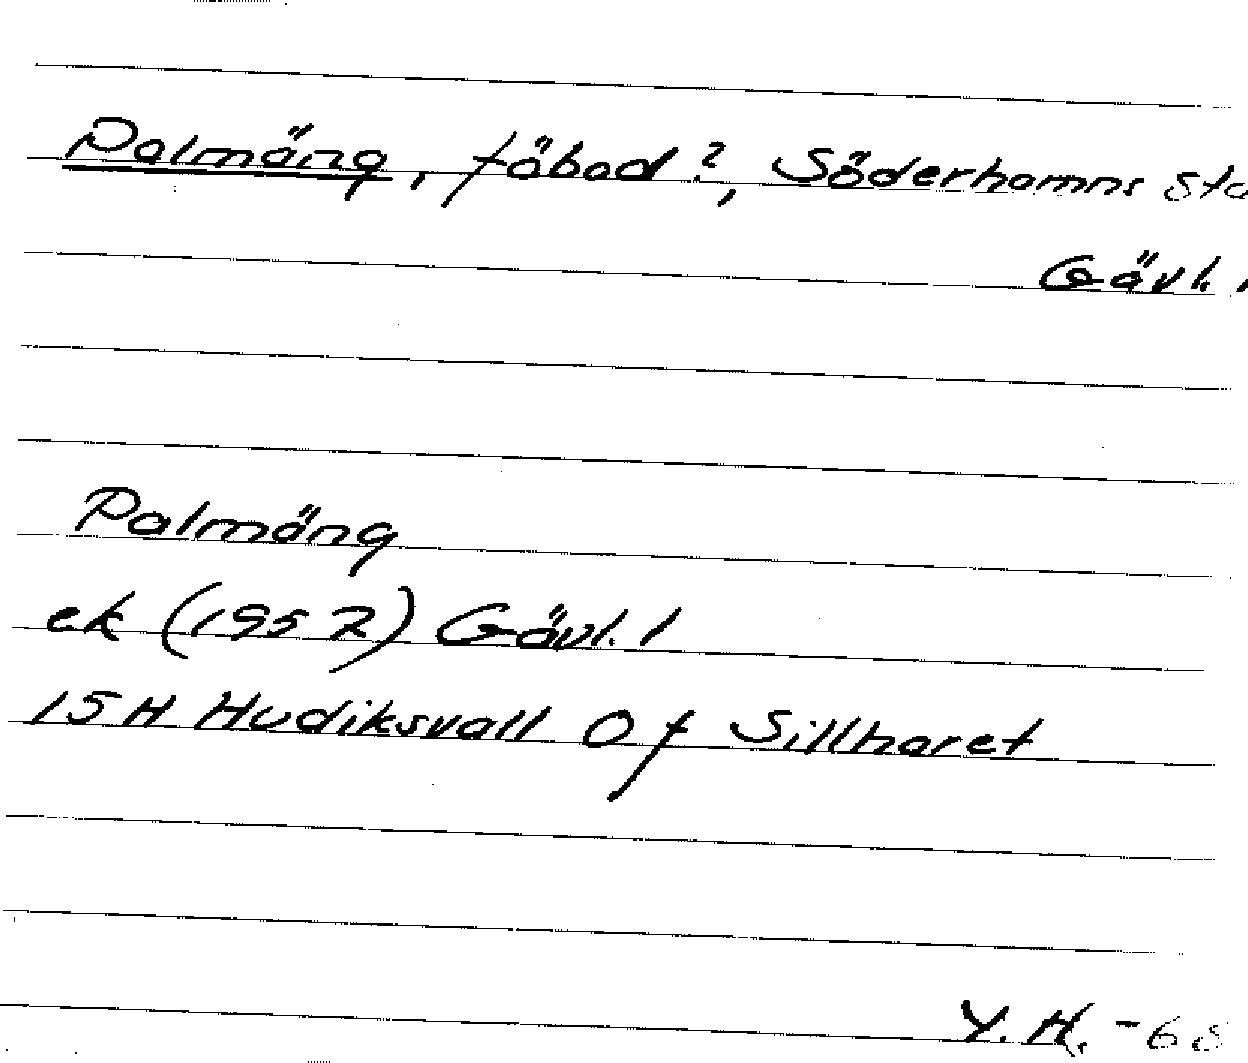 Palmäng, fäbod?, Söderhamns
Gävl.
Palmäng
ek (1957) Gävl. l
15H Hudiksvall 0 f Sillharet
Y. H. -68